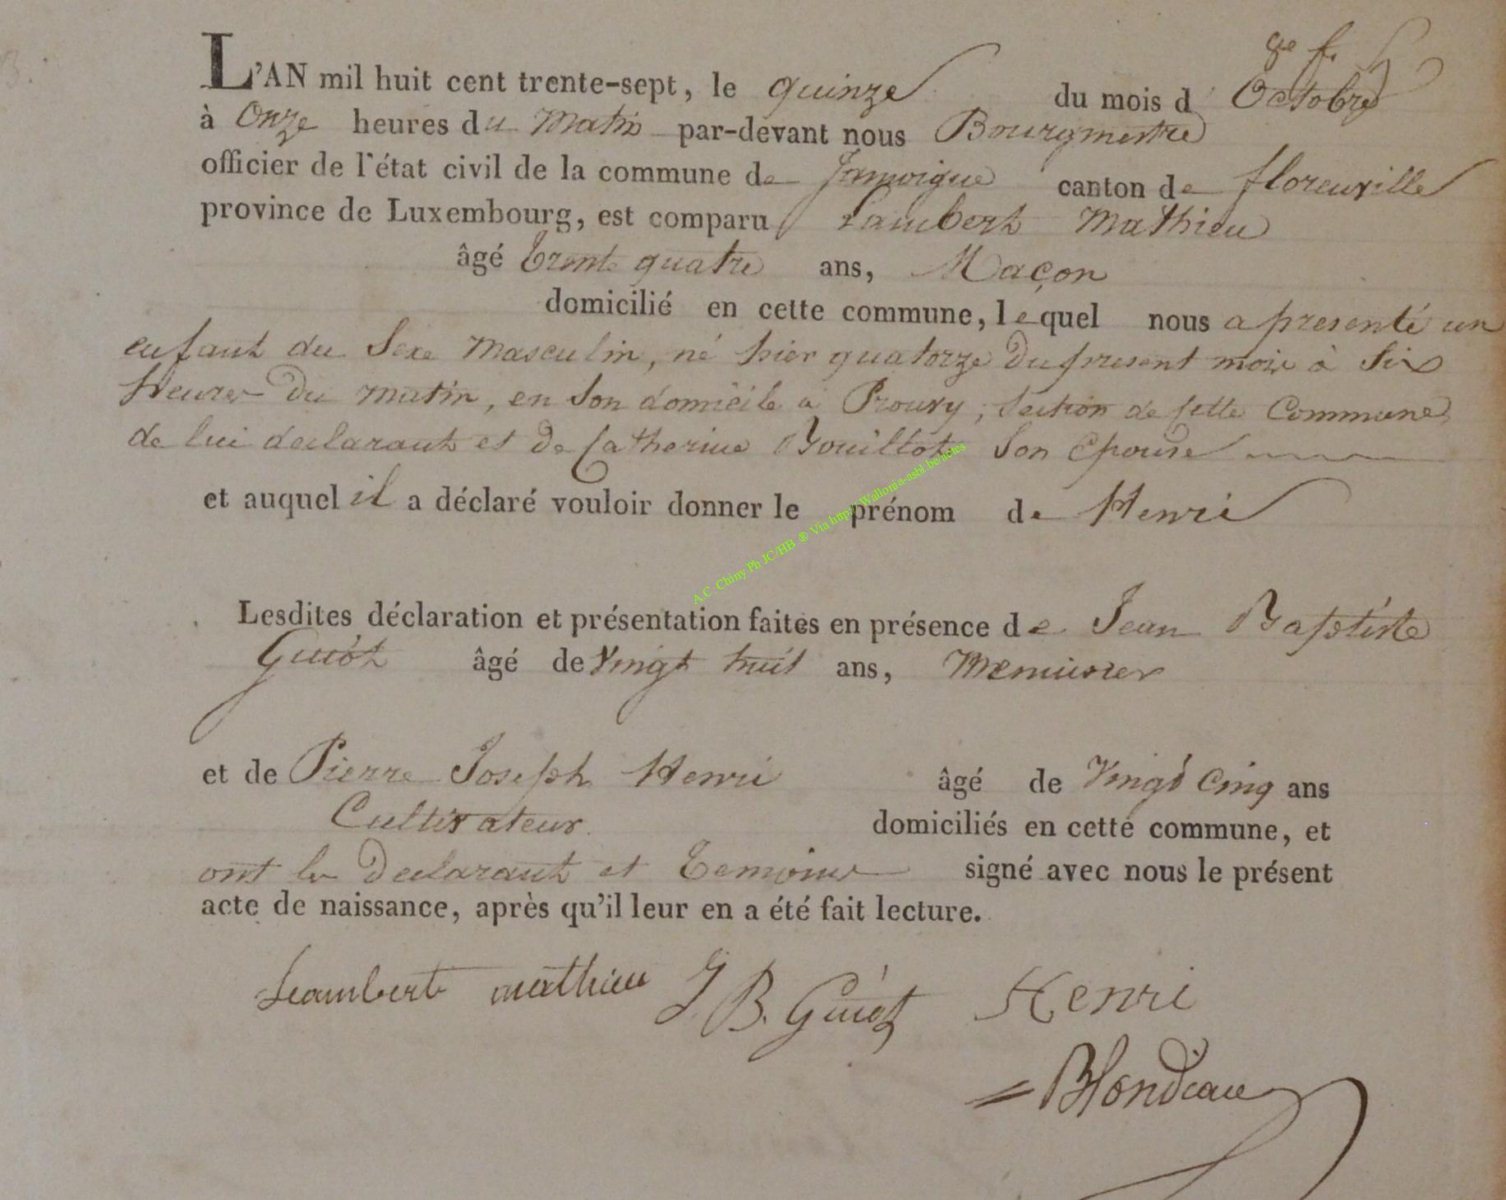 L'AN mil huit cent trente-sept, le quinze du mois d'Octobre
à Onze heures du Matin par-devant nous Bourgmestre
officier de l'état civil de la commune de Jamoigne canton de florenville
province de Luxembourg, est comparu Lambert Mathieu
âgé trente quatre ans, Maçon
domicilié en cette commune, lequel nous a presenté un
enfant du Sexe Masculin, né hier quatorze du present mois à Six
Heures Du matin, en Son domicile a Prouvy, Section de cette Commune
de lui declarant et de Catherine Bouillot Son Epouse
et auquel il a déclaré vouloir donner le prénom de Henri
A.C. Chiny Ph JC/HB ® Via http://Wallonia-asbl.be/actes
Lesdites déclaration et présentation faites en présence de Jean Baptiste
Guiot âgé de Vingt huit ans, Menuisier
et de Pierre Joseph Henri âgé de Vingt Cinq ans
Cultivateur domiciliés en cette commune, et
ont le Declarant et Temoins signé avec nous le présent
acte de naissance, après qu'il leur en a été fait lecture.
Lambert mathieu J B. Guiot Henri
Blondeau